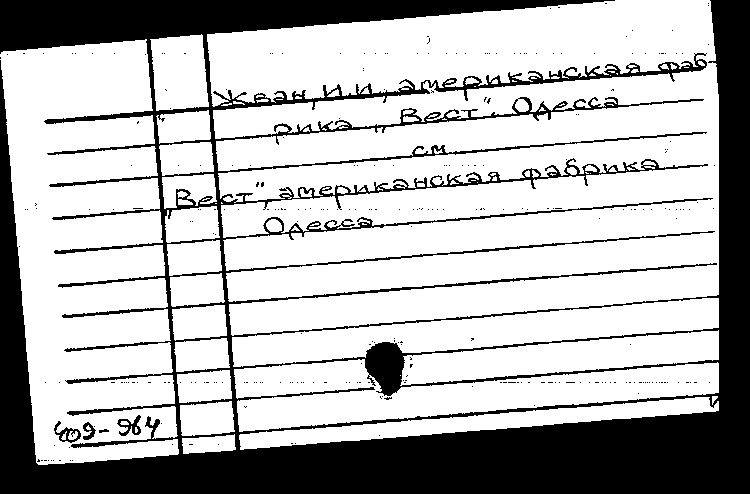 Жван, И.И., американская фаб-
рика „Вест". Одесса
см.
„Вест", американская фабрика.
Одесса.
409-964